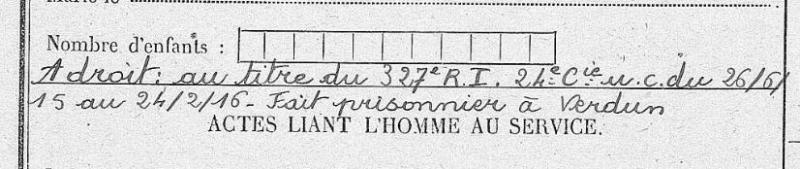 Nombre d'enfants :
A droit : au titre du 327e R.I. 24e Cie u.c. du 26/6/
15 au 24/2/16 - Fait prisonnier à Verdun
ACTES LIANT L'HOMME AU SERVICE.